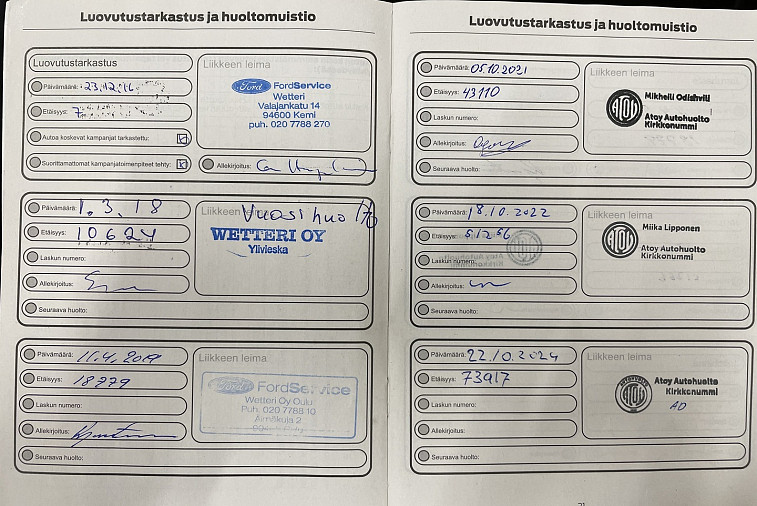 Luovutustarkastus ja huoltomuistio
Luovutustarkastus
Päivämäärä: 23.12.16
Etäisyys: 7
Autoa koskevat kampanjat tarkastettu:
Suorittamattomat kampanjatoimenpiteet tehty:
Liikkeen leima
Ford FordService
Wetteri
Valajankatu 14
94600 Kemi
puh. 020 7788 270
Allekirjoitus:
Päivämäärä: 1.3.18
Etäisyys: 10624
Laskun numero:
Allekirjoitus:
Seuraava huolto:
Liikkeen leima
Vuosihuolto
WETTERI OY
Ylivieska
Päivämäärä: 11.4.2019
Etäisyys: 18279
Laskun numero:
Allekirjoitus:
Seuraava huolto:
Liikkeen leima
Ford FordService
Wetteri Oy Oulu
Puh. 020 7788 10
Luovutustarkastus ja huoltomuistio
Päivämäärä: 05.10.2021
Etäisyys: 43110
Laskun numero:
Allekirjoitus:
Seuraava huolto:
Liikkeen leima
ATOY
Mikheili Odishvili
Atoy Autohuolto
Kirkkonummi
Päivämäärä: 18.10.2022
Etäisyys: 51256
Laskun numero:
Allekirjoitus:
Seuraava huolto:
Liikkeen leima
ATOY
Miika Lipponen
Atoy Autohuolto
Kirkkonummi
Päivämäärä: 22.10.2024
Etäisyys: 73917
Laskun numero:
Allekirjoitus:
Seuraava huolto:
Liikkeen leima
ATOY
Atoy Autohuolto
Kirkkonummi
AD